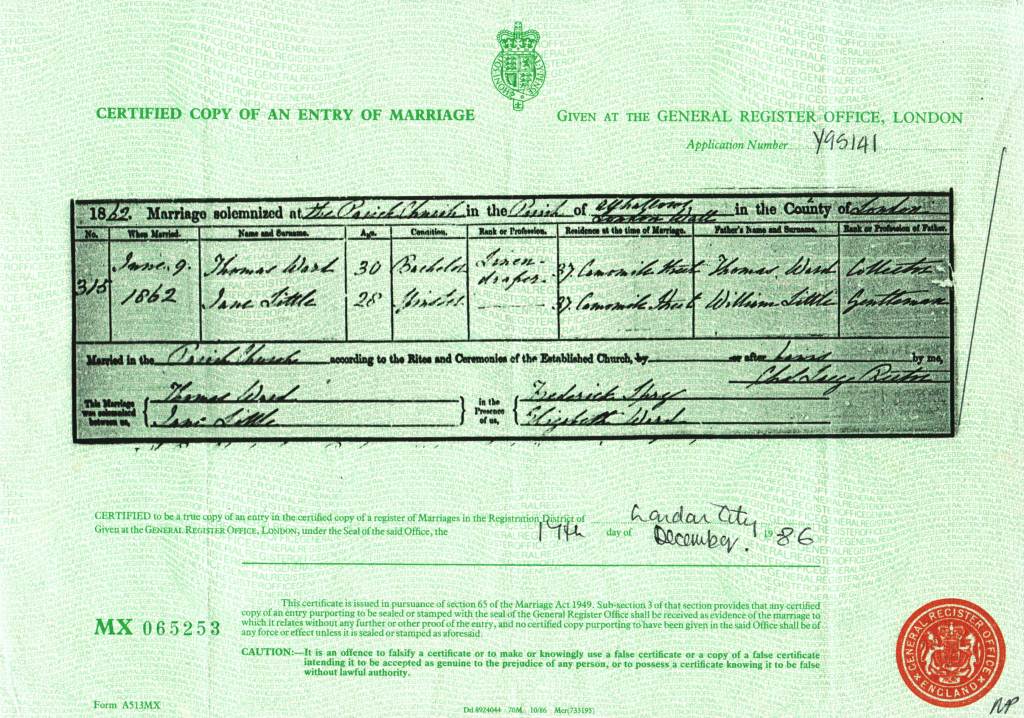 CERTIFIED COPY OF AN ENTRY OF MARRIAGE
GIVEN AT THE GENERAL REGISTER OFFICE, LONDON
Application Number Y95141
1862. Marriage solemnized at the Parish Church in the Parish of Allhallows London Wall in the County of London
No. When Married. Name and Surname. Age. Condition. Rank or Profession. Residence at the time of Marriage. Father's Name and Surname. Rank or Profession of Father.
315 June 9. 1862 Thomas Ward 30 Bachelor Linen-draper 37 Camomile Street Thomas Ward Collector
Jane Little 28 Spinster 37 Camomile Street William Little Gentleman
Married in the Parish Church according to the Rites and Ceremonies of the Established Church, by or after Banns by me,
Rector
This Marriage was solemnized between us, Thomas Ward Jane Little in the Presence of us, Frederick Elizabeth Ward
CERTIFIED to be a true copy of an entry in the certified copy of a register of Marriages in the Registration District of London City
Given at the GENERAL REGISTER OFFICE, LONDON, under the Seal of the said Office, the 17th day of December. 1986
MX 065253
This certificate is issued in pursuance of section 65 of the Marriage Act 1949. Sub-section 3 of that section provides that any certified
copy of an entry purporting to be sealed or stamped with the seal of the General Register Office shall be received as evidence of the marriage to
which it relates without any further or other proof of the entry, and no certified copy purporting to have been given in the said Office shall be of
any force or effect unless it is sealed or stamped as aforesaid.
CAUTION:—It is an offence to falsify a certificate or to make or knowingly use a false certificate or a copy of a false certificate
intending it to be accepted as genuine to the prejudice of any person, or to possess a certificate knowing it to be false
without lawful authority.
GENERAL REGISTER OFFICE
ENGLAND
Form A513MX
Dd 8924044 70M 10/86 Mcr(733195)